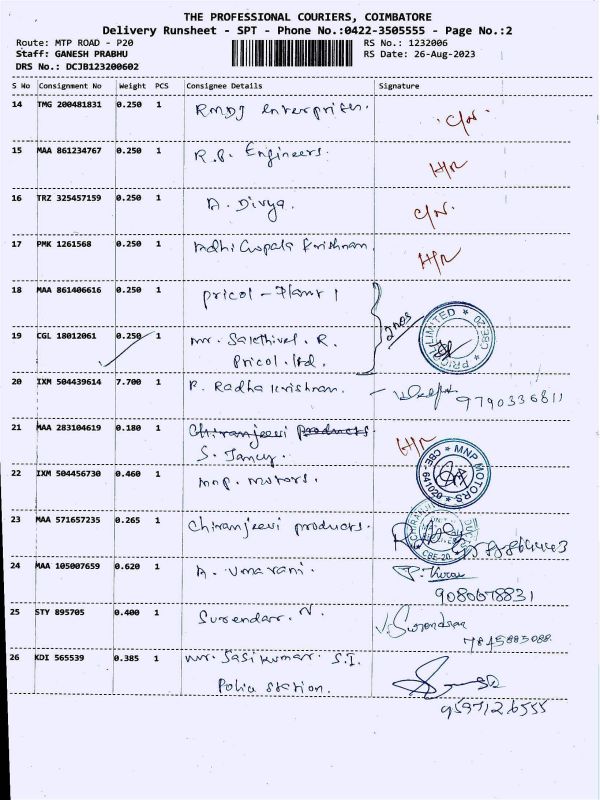 THE PROFESSIONAL COURIERS, COIMBATORE
Delivery Runsheet - SPT - Phone No.:0422-3505555 - Page No.:2
Route: MTP ROAD - P20
RS No.: 1232006
Staff: GANESH PRABHU
RS Date: 26-Aug-2023
DRS No.: DCJB123200602
S No Consignment No Weight PCS Consignee Details Signature
14 TMG 200481831 0.250 1 Enterprises. C/N.
15 MAA 861234767 0.250 1 R.P. Engineers. H/R
16 TRZ 325457159 0.250 1 A. Divya. C/N.
17 PMK 1261568 0.250 1 Adhi Gopala Krishnan. H/R
18 MAA 861406616 0.250 1 Pricol - Plant 1
2 nos
PRICOL LIMITED CBE-20
19 CGL 18012061 0.250 1 Mr. Sakthivel. R.
Pricol. Ltd.
20 IXM 504439614 7.700 1 P. Radha Krishnan. 9790336811
21 MAA 283104619 0.180 1 Chiranjeevi Products H/R
S. Jancy.
22 IXM 504456730 0.460 1 MNP. Motors.
MNP MOTORS CBE-641020
23 MAA 571657235 0.265 1 Chiranjeevi products.
CBE-20
24 MAA 105007659 0.620 1 A. Umarani.
9080678831
25 STY 895705 0.400 1 Surendar. N. Surendran
7845885088
26 KDI 565539 0.385 1 Mr. Sasikumar. S.I.
Police Station.
9597126555